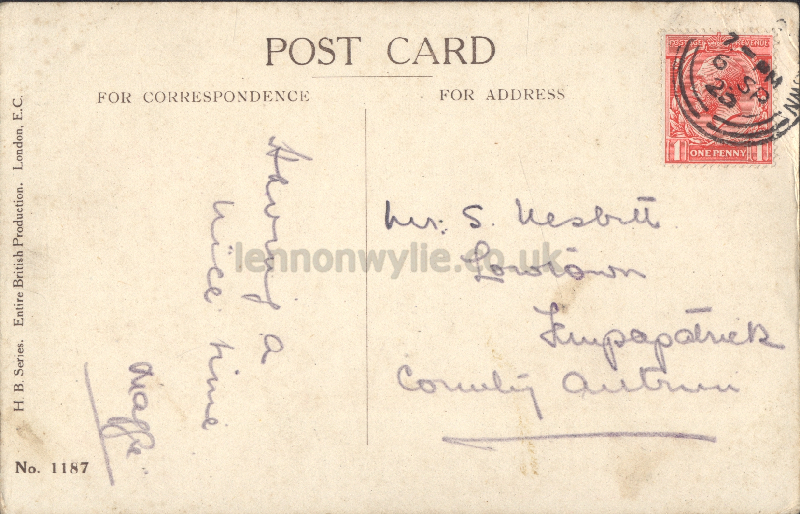 POST CARD
FOR CORRESPONDENCE
FOR ADDRESS
Having a
nice time
Maggie
Mr. S. Nesbitt
Lowtown
Templepatrick
County Antrim
POSTAGE REVENUE
ONE PENNY
1
7 - PM
6 SP
23
H. B. Series. Entire British Production. London, E.C.
No. 1187
lennonwylie.co.uk